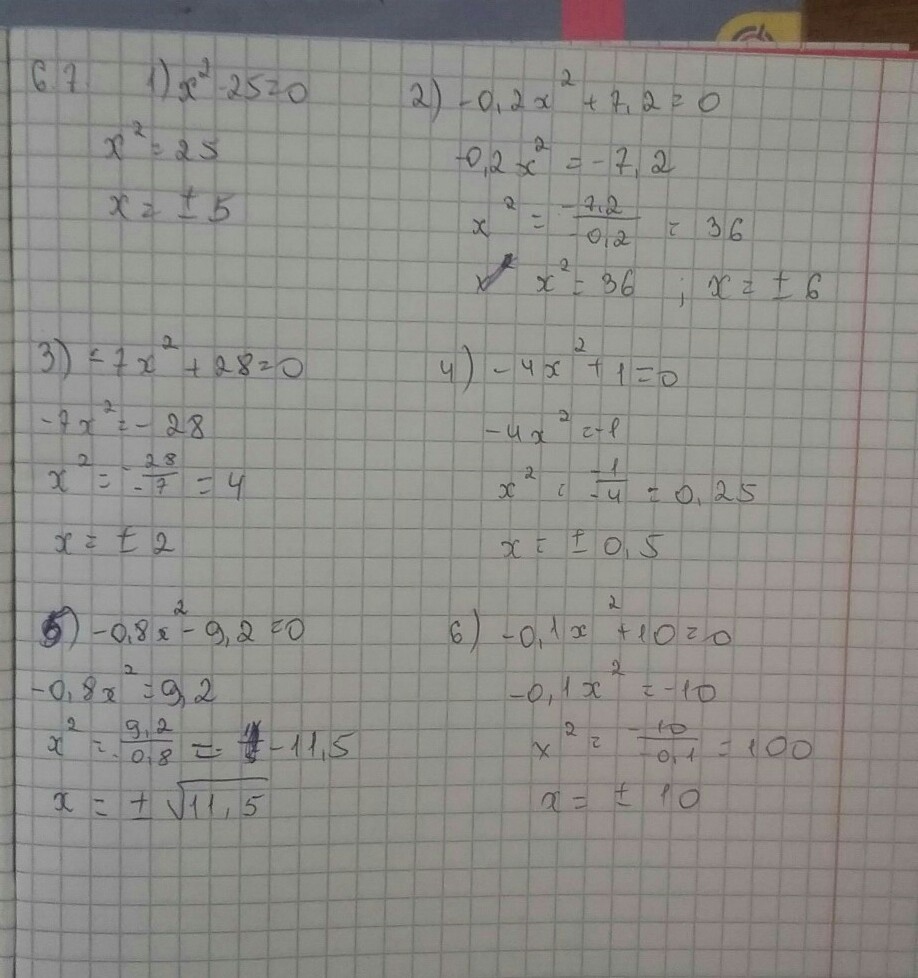 6.7. 1) x² - 25 = 0
x² = 25
x = ± 5
2) -0,2x² + 7,2 = 0
-0,2x² = -7,2
x² = -7,2 / -0,2 = 36
x² = 36 ; x = ± 6
3) -7x² + 28 = 0
-7x² = -28
x² = -28 / -7 = 4
x = ± 2
4) -4x² + 1 = 0
-4x² = -1
x² = -1 / -4 = 0,25
x = ± 0,5
5) -0,8x² - 9,2 = 0
-0,8x² = 9,2
x² = 9,2 / -0,8 = -11,5
x = ± √11,5
6) -0,1x² + 10 = 0
-0,1x² = -10
x² = -10 / -0,1 = 100
x = ± 10